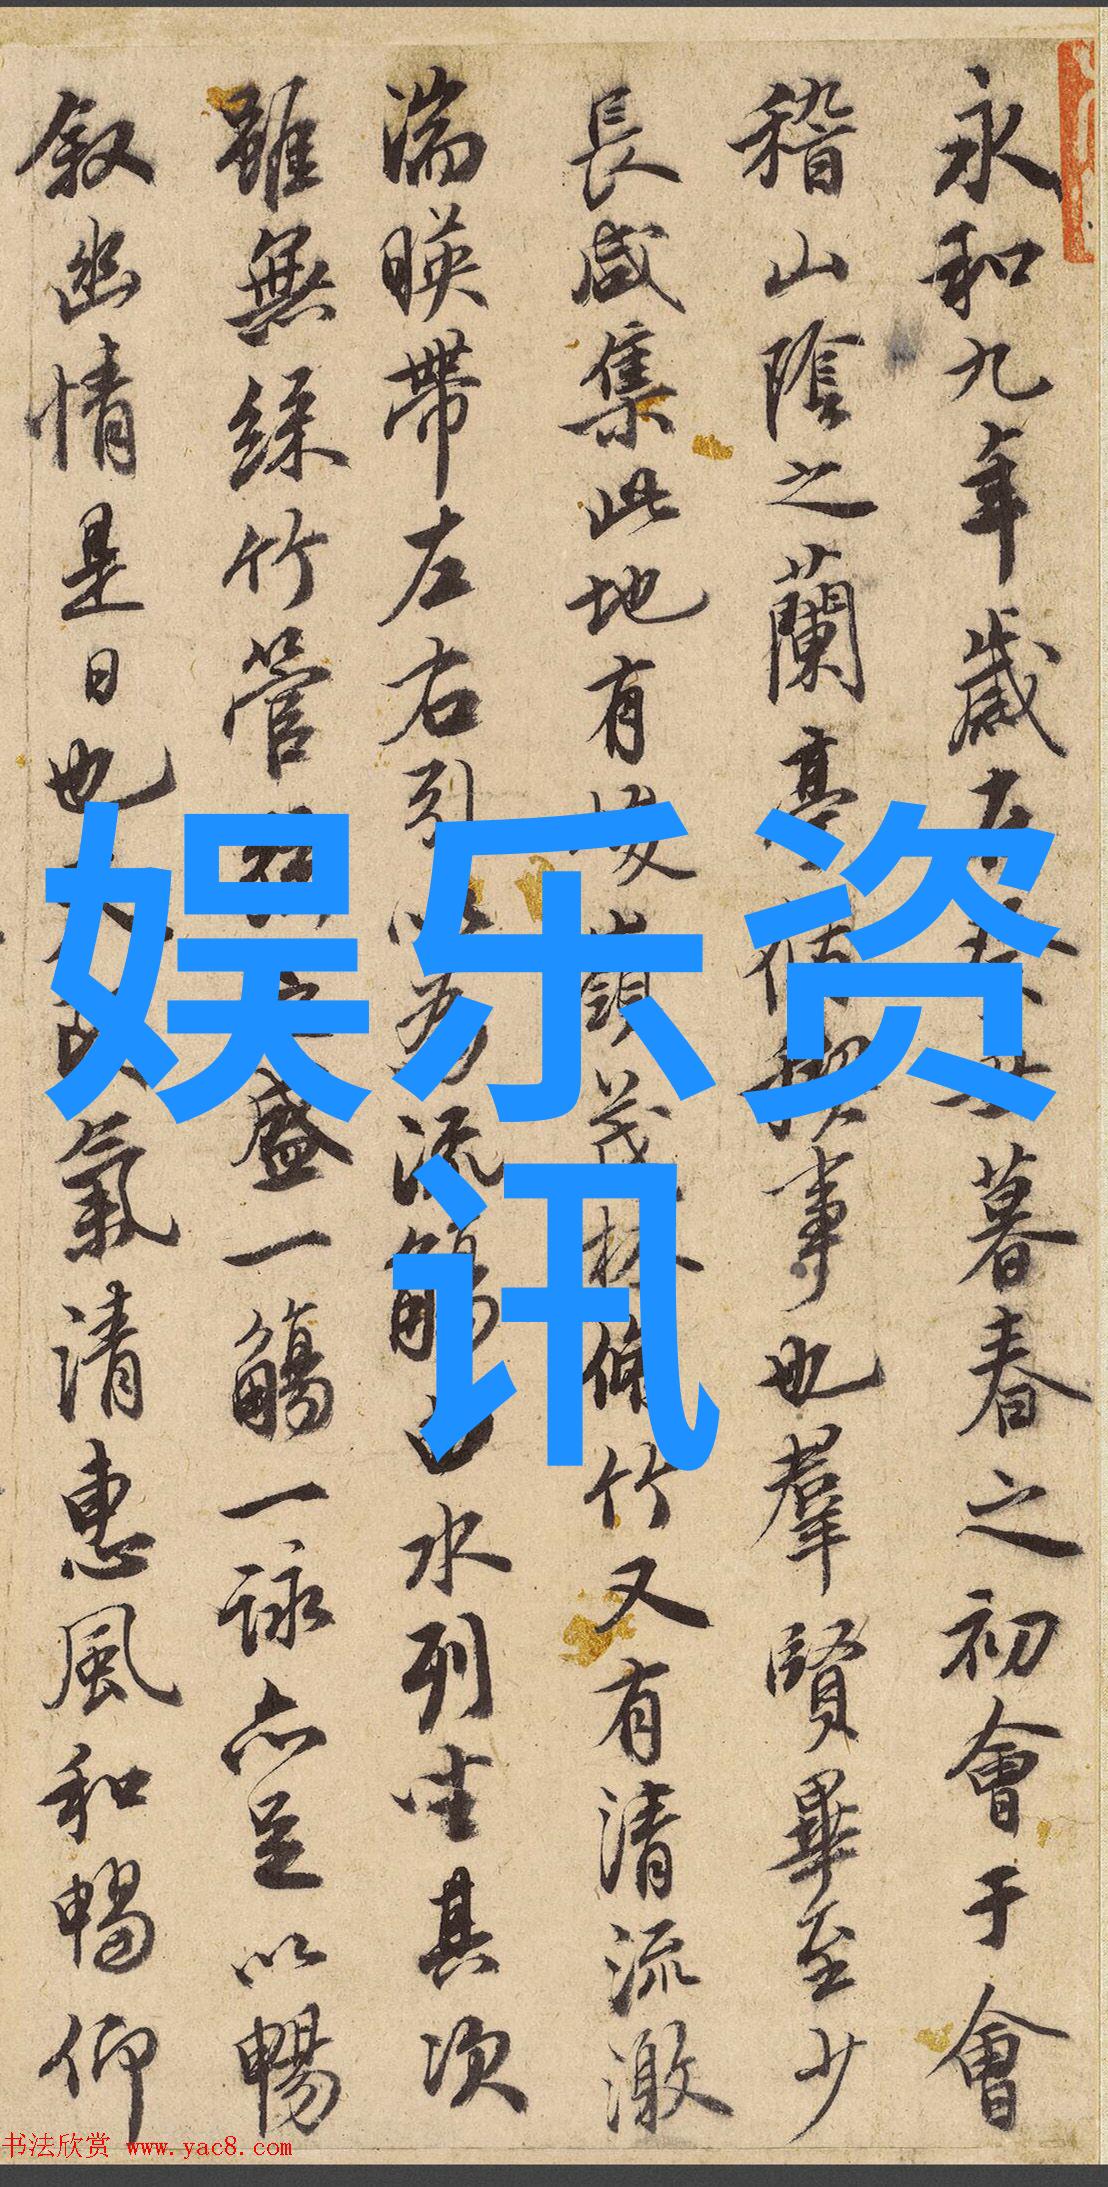 永和九年歲在暮春之初會于會
稽山陰之蘭亭脩禊事也羣賢畢至少
長咸集此地有峻嶺茂林脩竹又有清流激
湍暎帶左右引以為流觴曲水列坐其次
雖無絲竹管盛一觴一詠亦足以暢
叙幽情是日也氣清惠風和暢仰
娱乐资
讯
书法欣赏 www.yac8.com